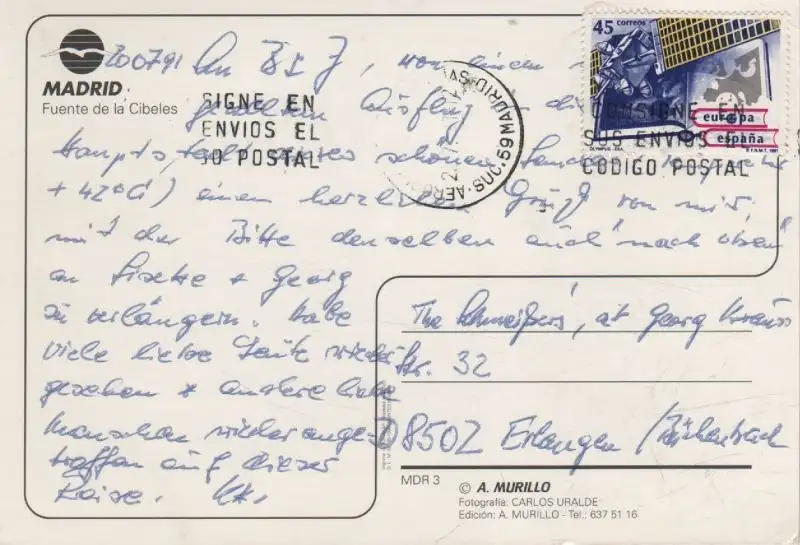 MADRID
Fuente de la Cibeles
200791 An B & J, von einem
Hauptstadt dieses schönen Landes
+ 42°C) einen herzlichen Gruß von mir,
mit der Bitte denselben auch "nach oben"
an & Georg
zu verlängern. Habe
viele liebe Leute wieder
gesehen & andere liebe
Menschen wieder ange-
troffen auf dieser
Reise.
45 correos
europa
españa
OLYMPUS-ESA
F.N.M.T. 1991
SIGNE EN
ENVIOS EL
GO POSTAL
CONSIGNE EN
SUS ENVIOS EL
CODIGO POSTAL
MADRID SUC. 59 AERO
The at Georg Krauss
Str. 32
D 8502 Erlangen / Büchenbach
MDR 3
© A. MURILLO
Fotografía: CARLOS URALDE
Edición: A. MURILLO - Tel.: 637 51 16